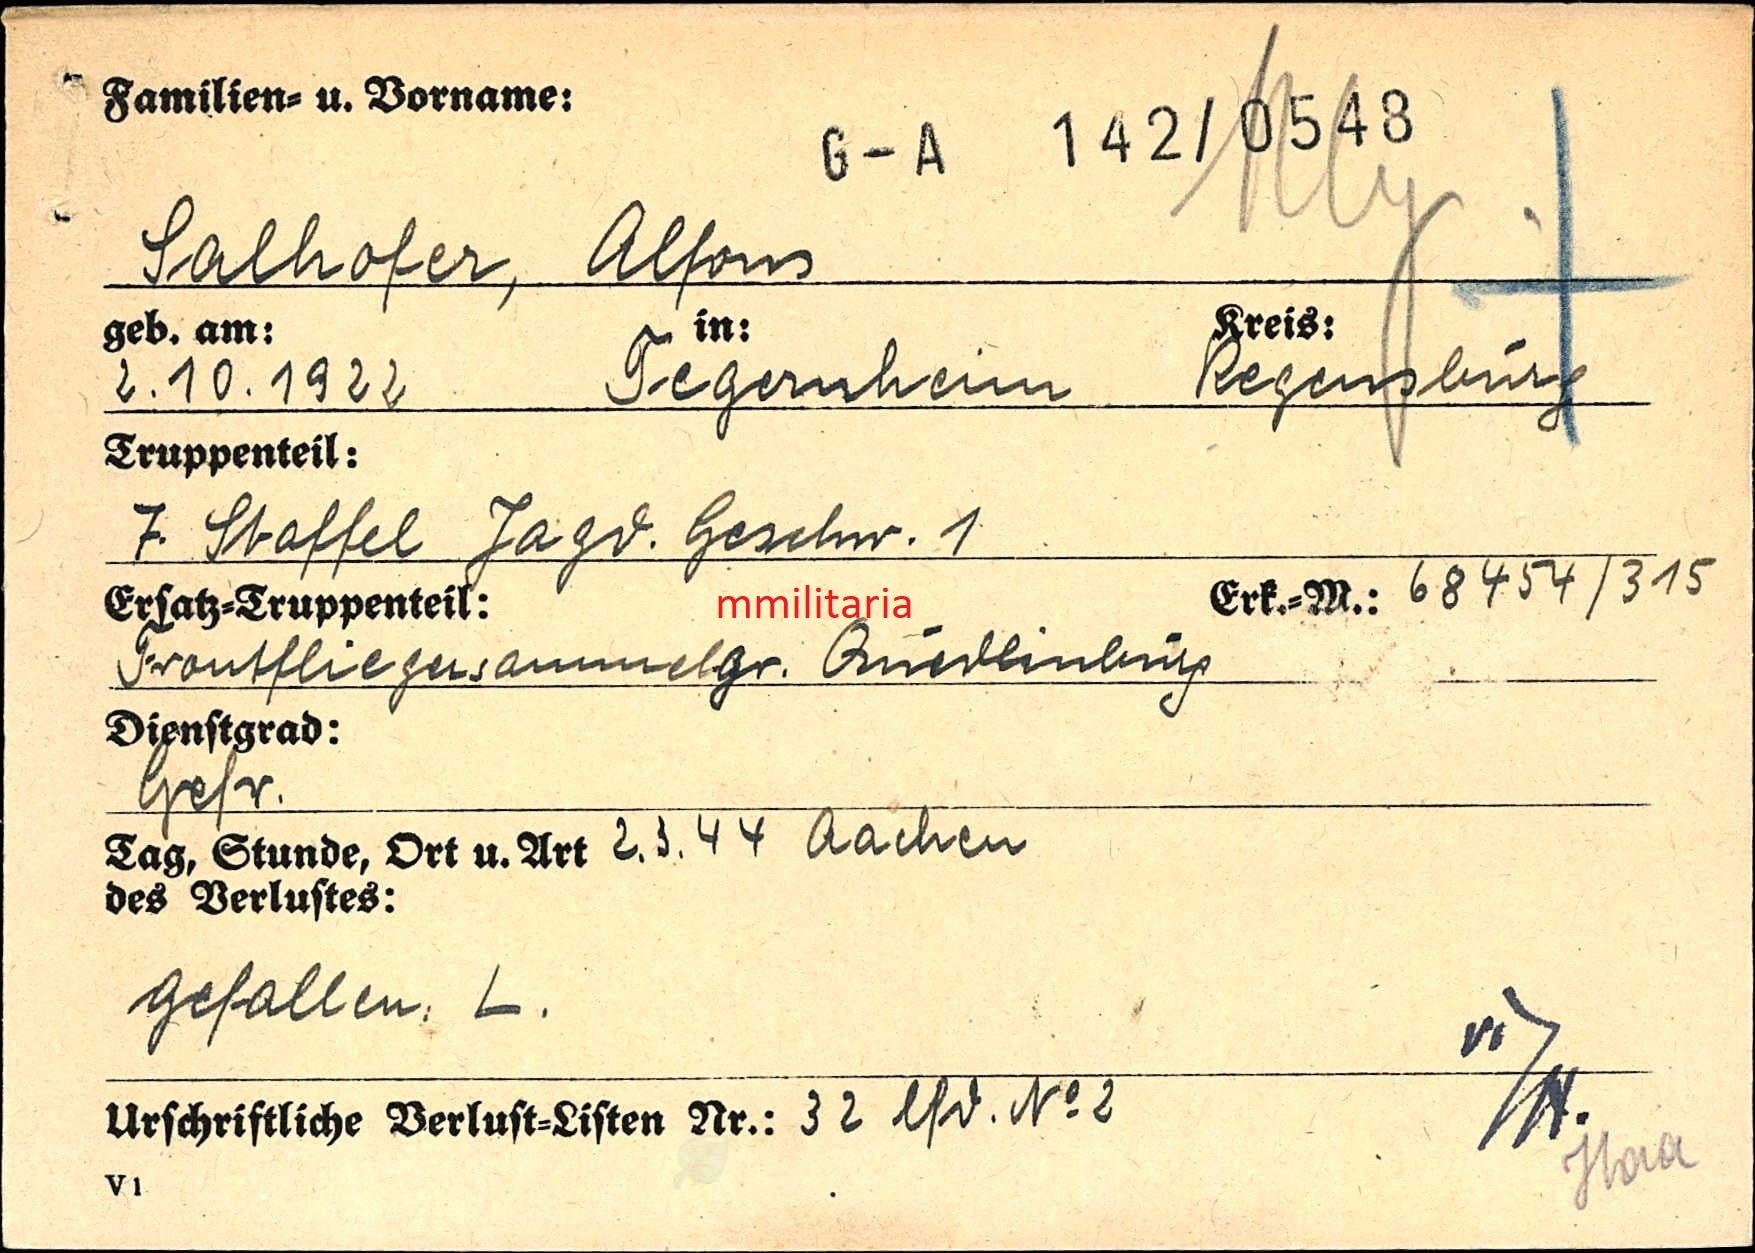 Familien= u. Vorname:
G-A 142/0548
Salhofer, Alfons
geb. am: in: Kreis:
2.10.1922 Tegernheim Regensburg
Truppenteil:
7. Staffel Jagd. Geschw. 1
Ersatz=Truppenteil: mmilitaria Erk.=M.: 68454/315
Frontfliegersammelgr. Quedlinburg
Dienstgrad:
Gefr.
Tag, Stunde, Ort u. Art 2.3.44 Aachen
des Verlustes:
gefallen. L.
Urschriftliche Verlust=Listen Nr.: 32 lfd. No 2
V 1